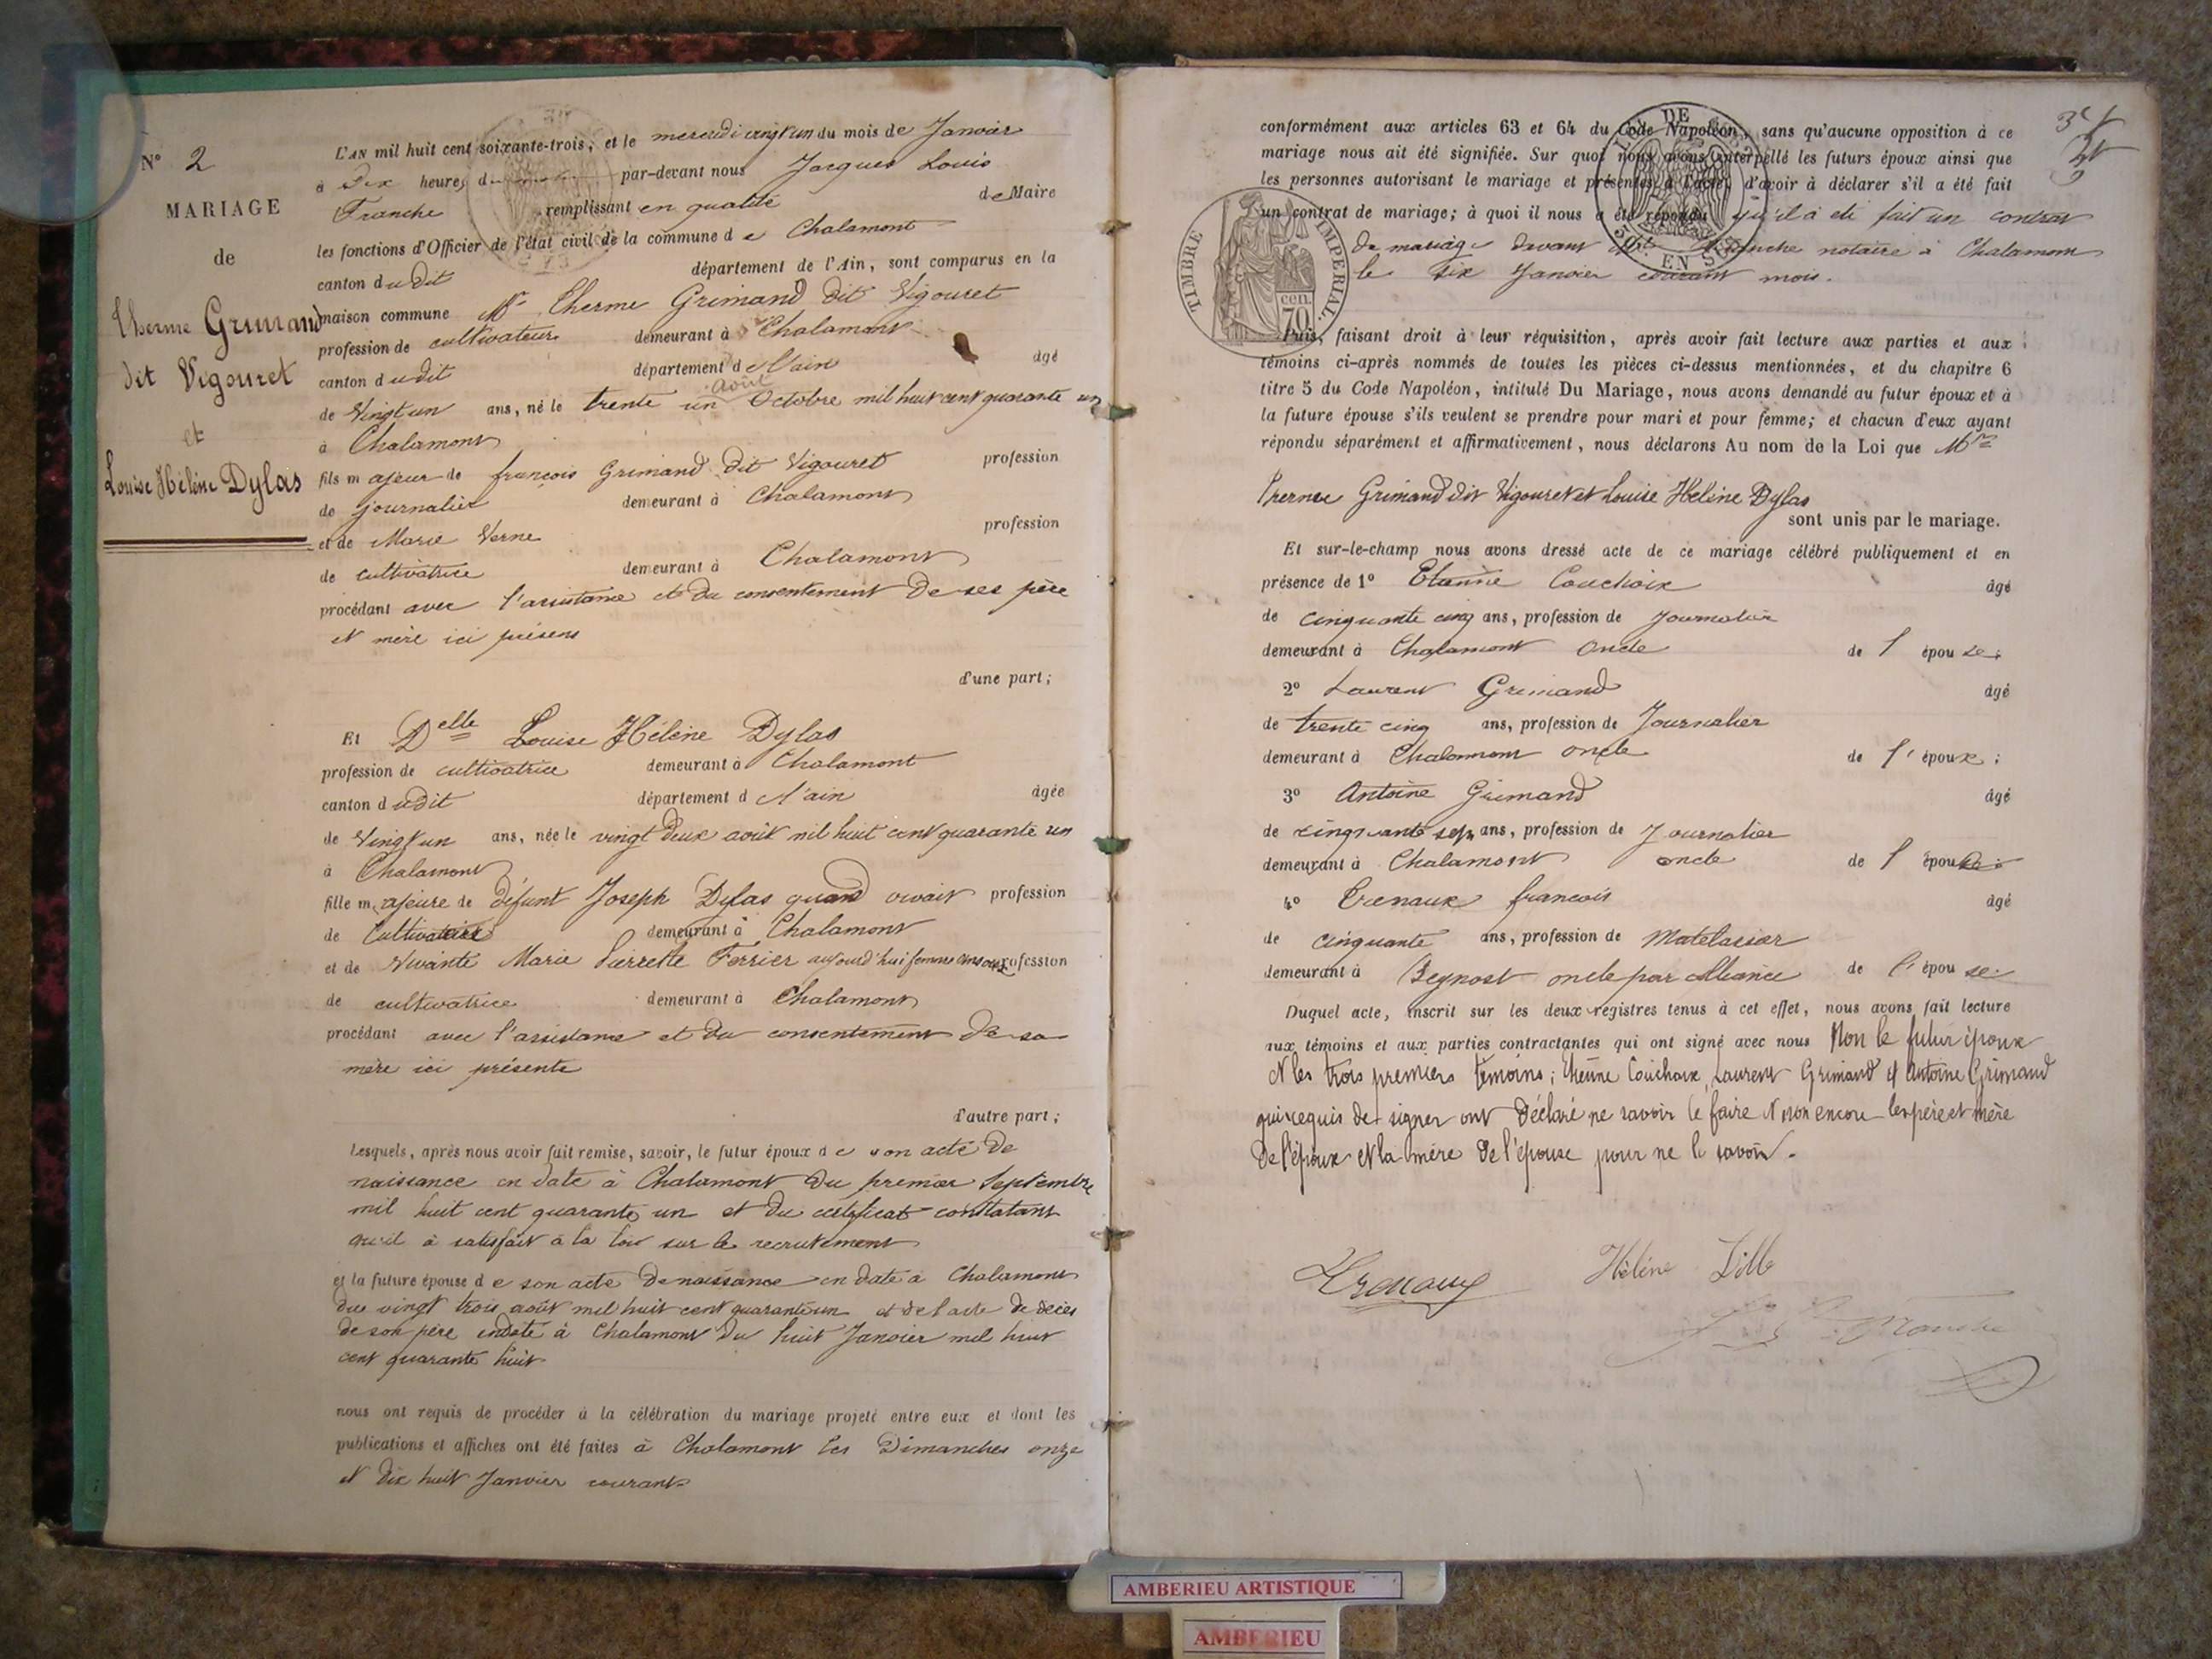 N° 2
MARIAGE
de
Therme Grimand
dit Vigouret
et
Louise Hélène Dylas
L'AN mil huit cent soixante-trois, et le mercredi vingt un du mois de Janvier
à Dix heures d par-devant nous Jacques Louis
Franche remplissant en qualité de Maire
les fonctions d'Officier de l'état civil de la commune d e Chalamont
canton dudit département de l'Ain, sont comparus en la
maison commune Mr Therme Grimand dit Vigouret
profession de cultivateur demeurant à Chalamont
canton dudit département de l'ain âgé
août
de Vingt un ans, né le trente un Octobre mil huit cent quarante un
à Chalamont
fils majeur de françois Grimand dit Vigouret profession
de journalier demeurant à Chalamont
et de Marie Verne profession
de cultivatrice demeurant à Chalamont
procédant avec l'assistance et du consentement de ses père
et mère ici présens
d'une part;
Et Delle Louise Hélène Dylas
profession de cultivatrice demeurant à Chalamont
canton dudit département d l'ain âgée
de Vingt un ans, née le vingt deux août mil huit cent quarante un
à Chalamont
fille majeure de défunt Joseph Dylas quand vivait profession
de Cultivateur demeurant à Chalamont
et de Vivante Marie Pierrette Ferrier aujourd'hui femme profession
de cultivatrice demeurant à Chalamont
procédant avec l'assistance et du consentement de sa
mère ici présente
d'autre part;
Lesquels, après nous avoir fait remise, savoir, le futur époux d e son acte de
naissance en date à Chalamont du premier Septembre
mil huit cent quarante un et du certificat constatant
qu'il à satisfait à la loi sur le recrutement
et la future épouse d e son acte de naissance en date à Chalamont
du vingt trois août mil huit cent quarante un et de l'acte de décès
de son père en date à Chalamont du huit Janvier mil huit
cent quarante huit
nous ont requis de procéder à la célébration du mariage projeté entre eux et dont les
publications et affiches ont été faites à Chalamont les Dimanches onze
et dix huit Janvier courant
conformément aux articles 63 et 64 du Code Napoléon, sans qu'aucune opposition à ce
mariage nous ait été signifiée. Sur quoi nous avons interpellé les futurs époux ainsi que
les personnes autorisant le mariage et présentes à l'acte, d'avoir à déclarer s'il a été fait
un contrat de mariage; à quoi il nous a été répondu qu'il à été fait un contrat
de mariage devant Franche notaire à Chalamont
le six Janvier courant mois.
TIMBRE IMPERIAL
cen. 70
Puis, faisant droit à leur réquisition, après avoir fait lecture aux parties et aux
témoins ci-après nommés de toutes les pièces ci-dessus mentionnées, et du chapitre 6
titre 5 du Code Napoléon, intitulé Du Mariage, nous avons demandé au futur époux et à
la future épouse s'ils veulent se prendre pour mari et pour femme; et chacun d'eux ayant
répondu séparément et affirmativement, nous déclarons Au nom de la Loi que Mr
Therme Grimand dit Vigouret et Louise Hélène Dylas
sont unis par le mariage.
Et sur-le-champ nous avons dressé acte de ce mariage célébré publiquement et en
présence de 1° Etienne Couchoix âgé
de cinquante cinq ans, profession de Journalier
demeurant à Chalamont oncle de l épouse;
2° Laurent Grimand âgé
de trente cinq ans, profession de Journalier
demeurant à Chalamont oncle de l' époux;
3° Antoine Grimand âgé
de cinquante sept ans, profession de Journalier
demeurant à Chalamont oncle de l
4° Trenaux francois âgé
de cinquante ans, profession de Matelasier
demeurant à Beynost oncle par alliance de l' épouse
Duquel acte, inscrit sur les deux registres tenus à cet effet, nous avons fait lecture
aux témoins et aux parties contractantes qui ont signé avec nous Non le futur époux
et les trois premiers témoins; Etienne Couchoix, Laurent Grimand et Antoine Grimand
qui requis de signer ont déclaré ne savoir le faire et non encore les père et mère
de l'époux et la mère de l'épouse pour ne le savoir.
Trenaux
Hélène Dille
Franche
AMBERIEU ARTISTIQUE
AMBERIEU